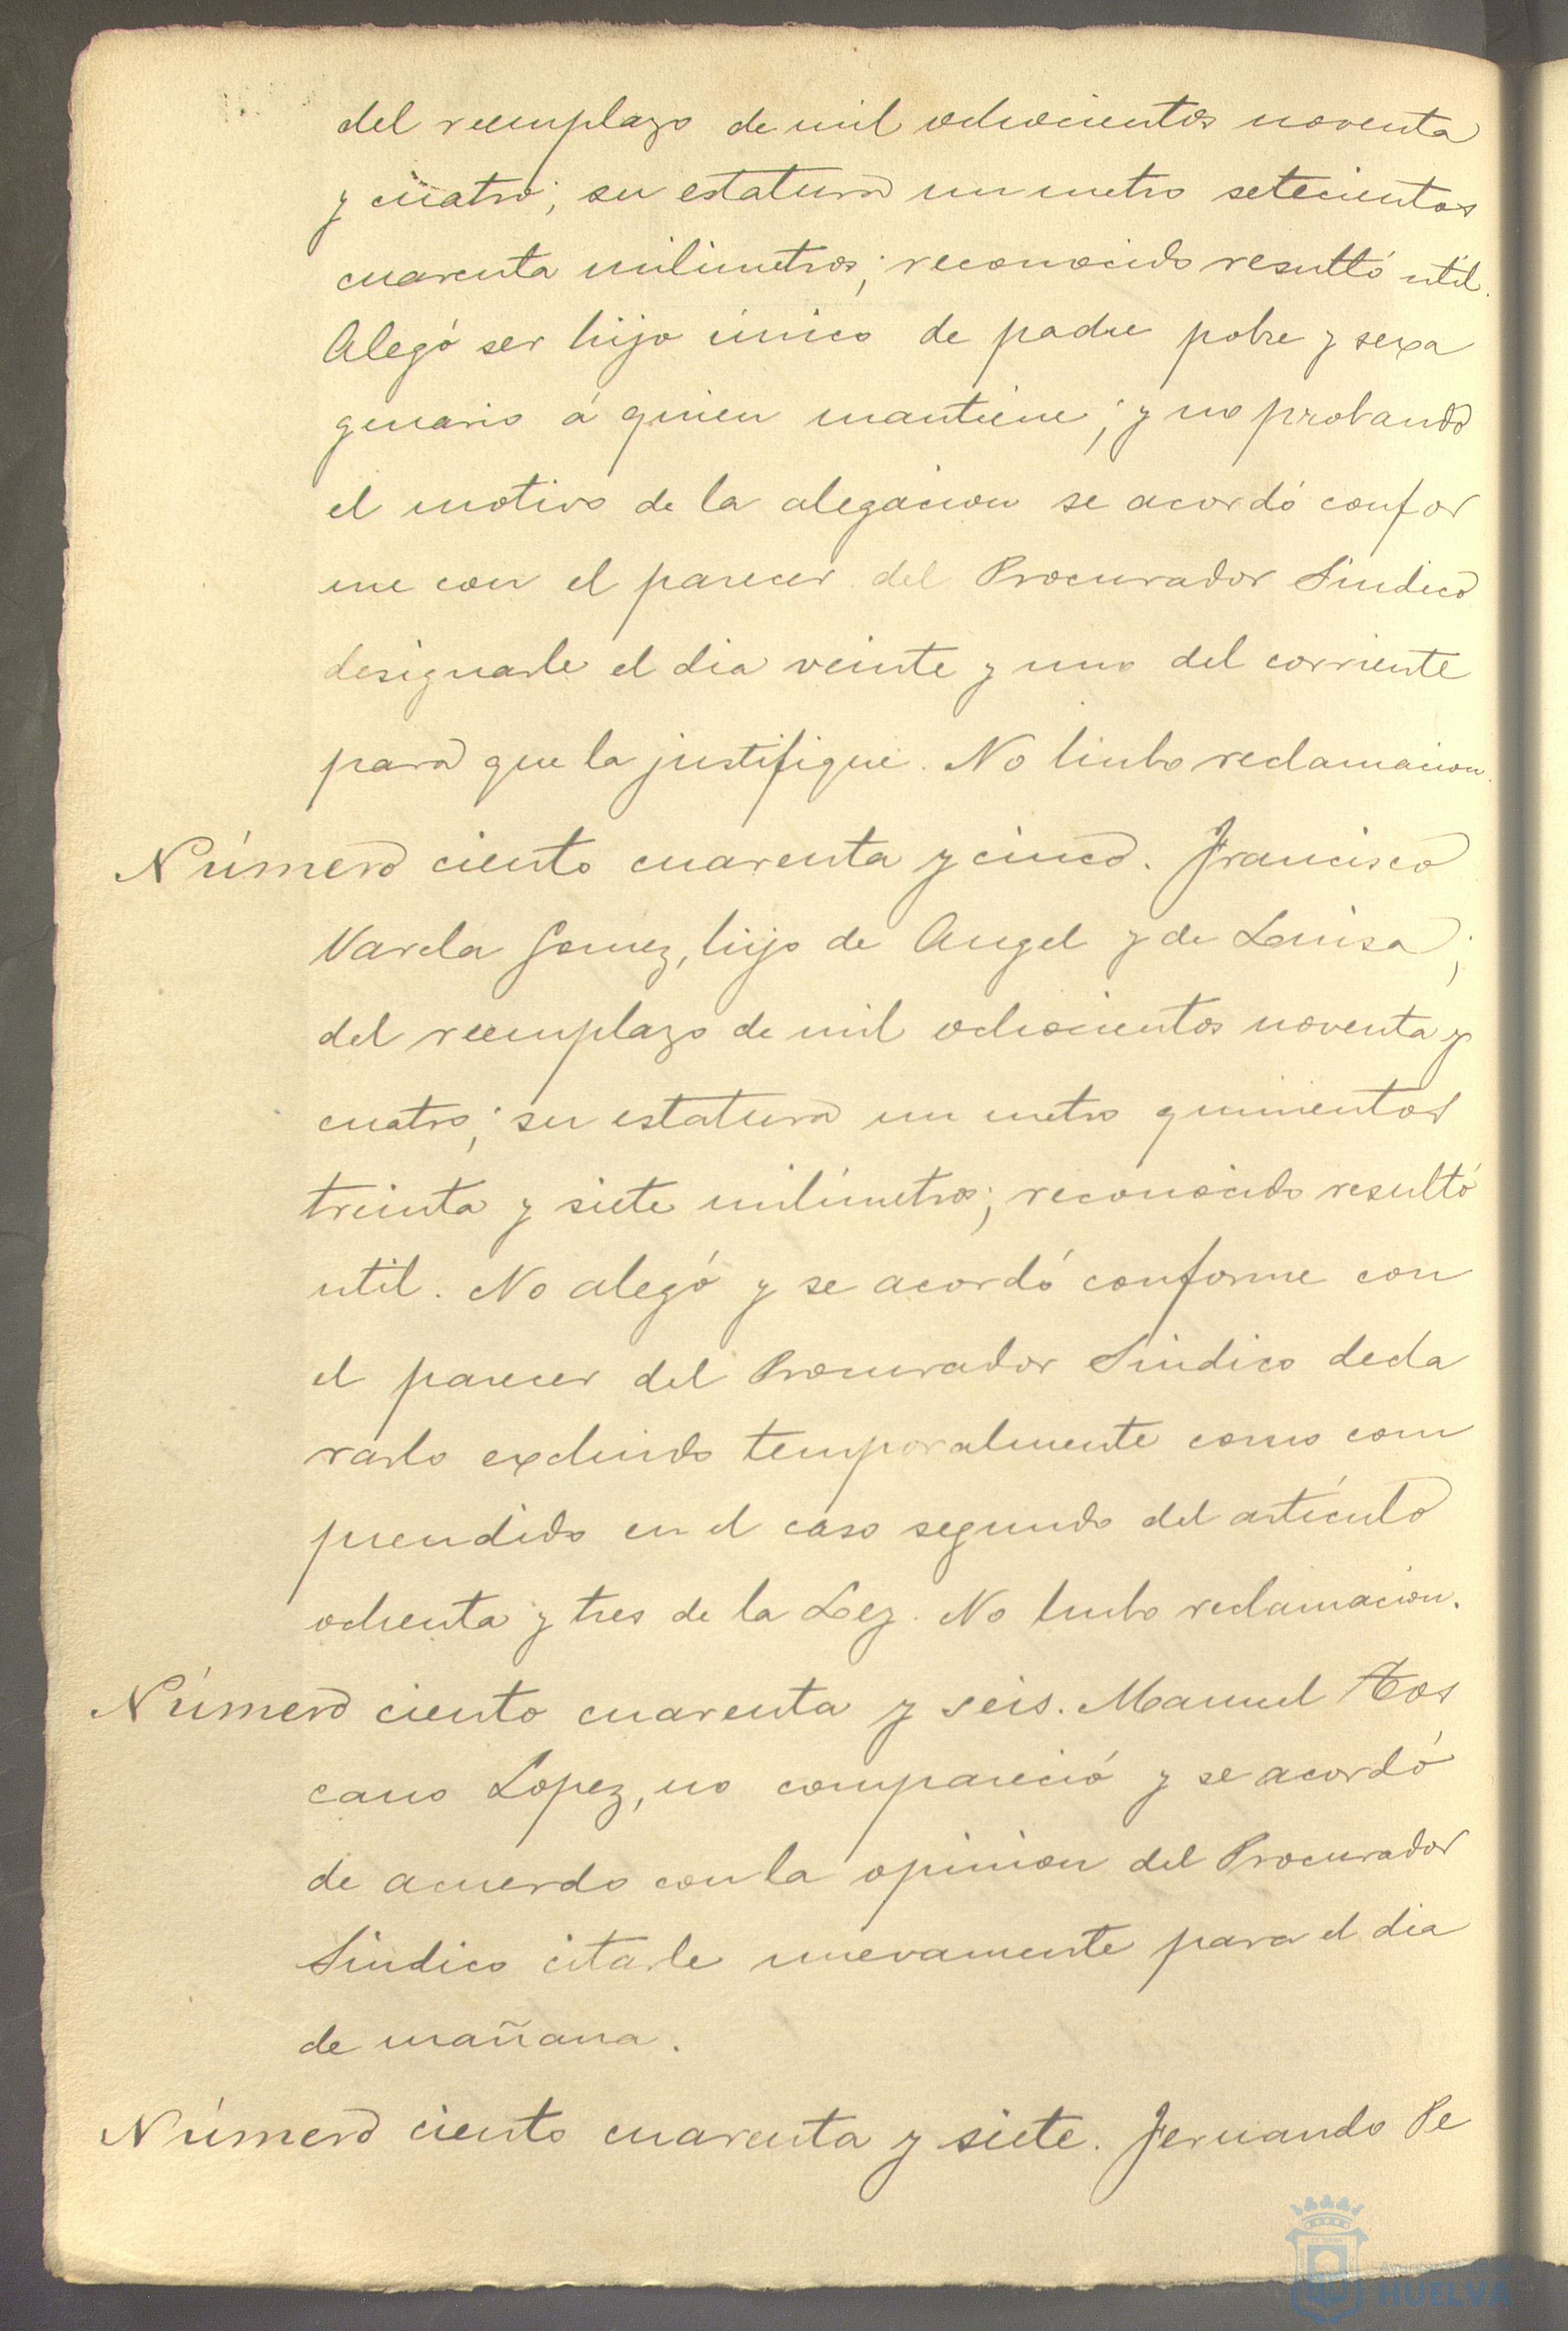 del reemplazo de mil ochocientos noventa
y cuatro; su estatura un metro setecientos
cuarenta milimetros; reconocido resultó util.
Alegó ser hijo único de padre pobre y sexa
genario á quien mantiene; y no probando
el motivo de la alegacion se acordó confor
me con el parecer del Procurador Sindico
designarle el dia veinte y uno del corriente
para que la justifique. No hubo reclamacion.
Número ciento cuarenta y cinco. Francisco
Varela Gomez, hijo de Angel y de Luisa;
del reemplazo de mil ochocientos noventa y
cuatro; su estatura un metro quinientos
treinta y siete milímetros; reconocido resultó
util. No alegó y se acordó conforme con
el parecer del Procurador Sindico decla
rarlo excluido temporalmente como com
prendido en el caso segundo del artículo
ochenta y tres de la Ley. No hubo reclamacion.
Número ciento cuarenta y seis. Manuel Tos
cano Lopez, no compareció y se acordó
de acuerdo con la opinion del Procurador
Sindico citarle nuevamente para el dia
de mañana.
Número ciento cuarenta y siete. Fernando Pe
HUELVA